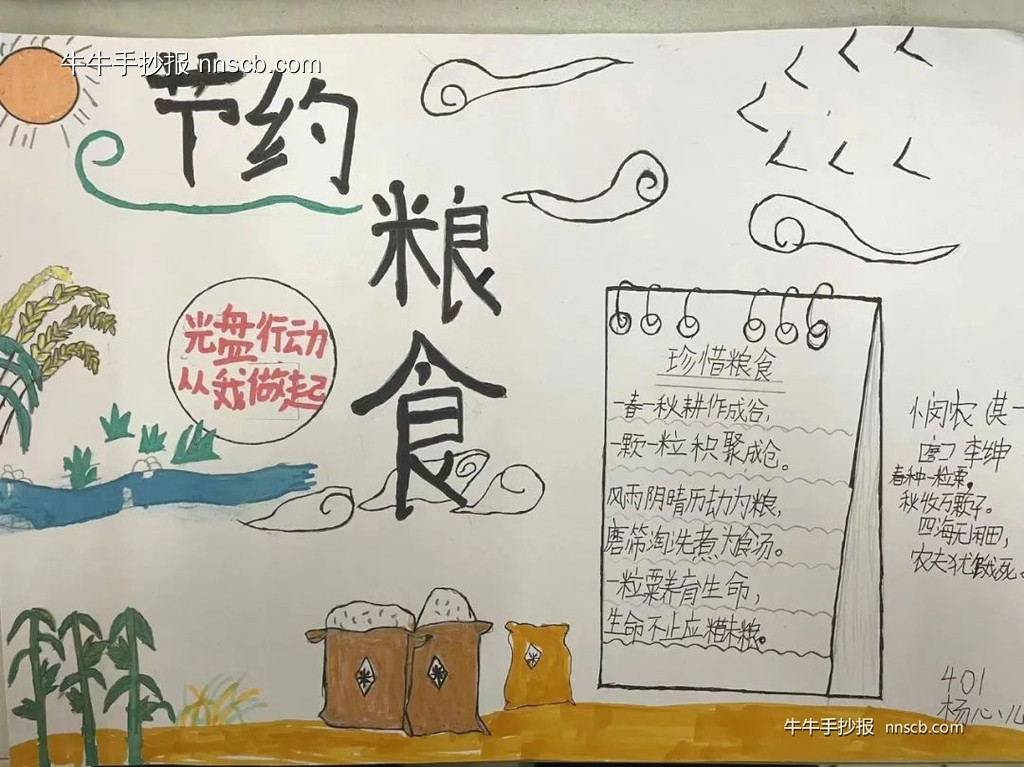 牛牛手抄报 nnscb.com
节约
粮
食
光盘行动
从我做起
珍惜粮食
一春一秋耕作成谷,
一颗一粒积聚成仓。
风雨阴晴历劫为粮,
磨筛淘洗煮为食汤。
一粒粟养育生命,
生命不止应惜粮。
悯农 其一
李绅
春种一粒粟,
秋收万颗子。
四海无闲田,
农夫犹饿死。
401
杨心儿
米
米
米
牛牛手抄报 nnscb.com